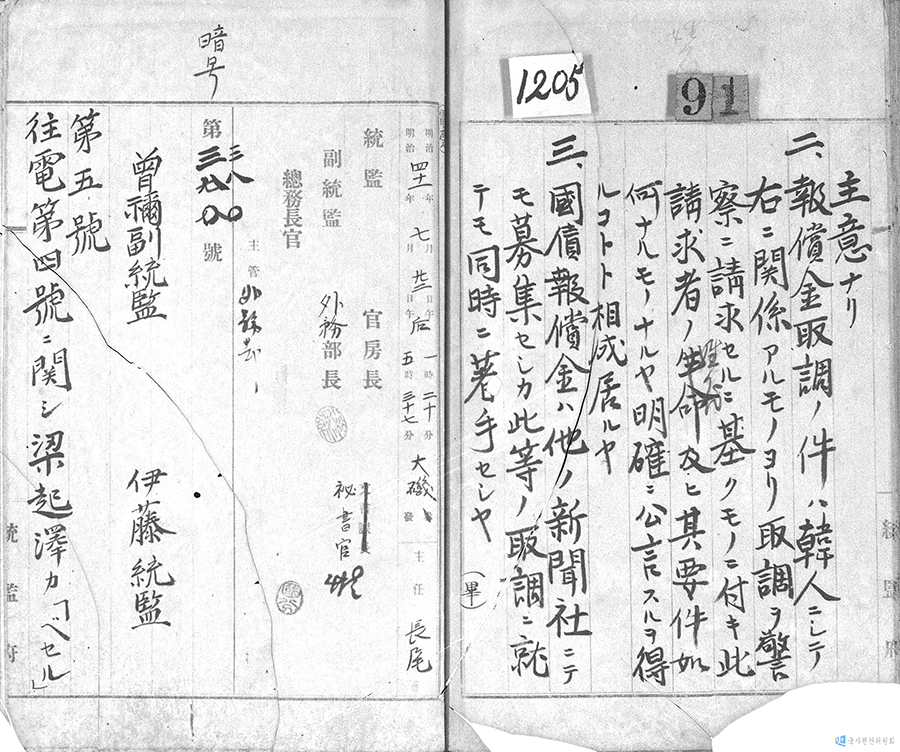 1205
91
主意ナリ
二、報償金取調ノ件ハ韓人ニシテ
右ニ関係アルモノヨリ取調ヲ警
察ニ請求セルニ基クモノニ付キ此
請求者ノ姓名及ヒ其要件如
何ナルモノナルヤ明確ニ公言スルヲ得
ルコトト相成居ルヤ
三、國債報償金ハ他ノ新聞社ニテ
モ募集セシカ此等ノ取調ニ就
テモ同時ニ著手セシヤ
(畢)
統監府
暗号
明治四十一年七月廿三日午后一時二十分大磯發
明治 年 月 日午 五時三十七分
主任 長尾
統監
官房長
秘書官
副統監
外務部長
總務長官
主管
第三八〇號
曾禰副統監
伊藤統監
第五號
往電第四號ニ関シ梁起澤カ「ベセル」
統監府
국사편찬위원회